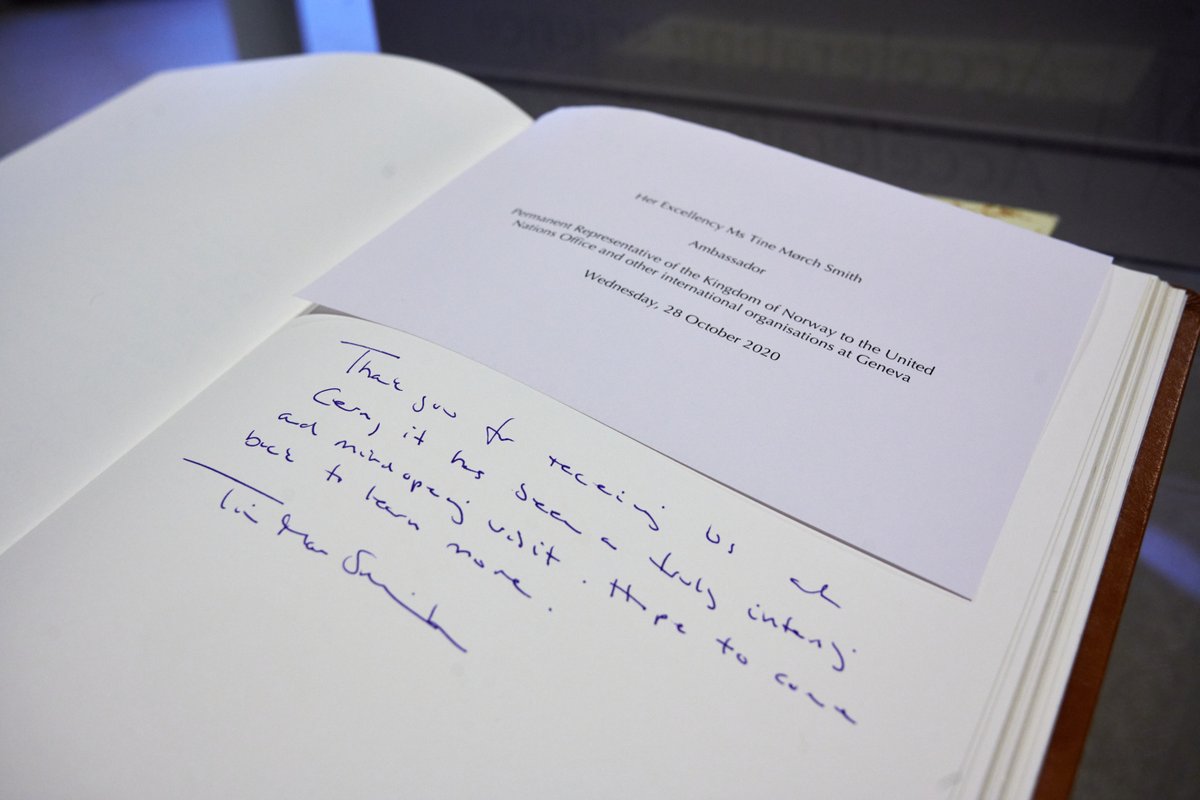 Her Excellency Ms Tine Mørch Smith
Ambassador
Permanent Representative of the Kingdom of Norway to the United
Nations Office and other international organisations at Geneva
Wednesday, 28 October 2020
Thank you for receiving us at
Cern, it has been a truly
and mindopening visit. Hope to come
back to learn more.
Smith